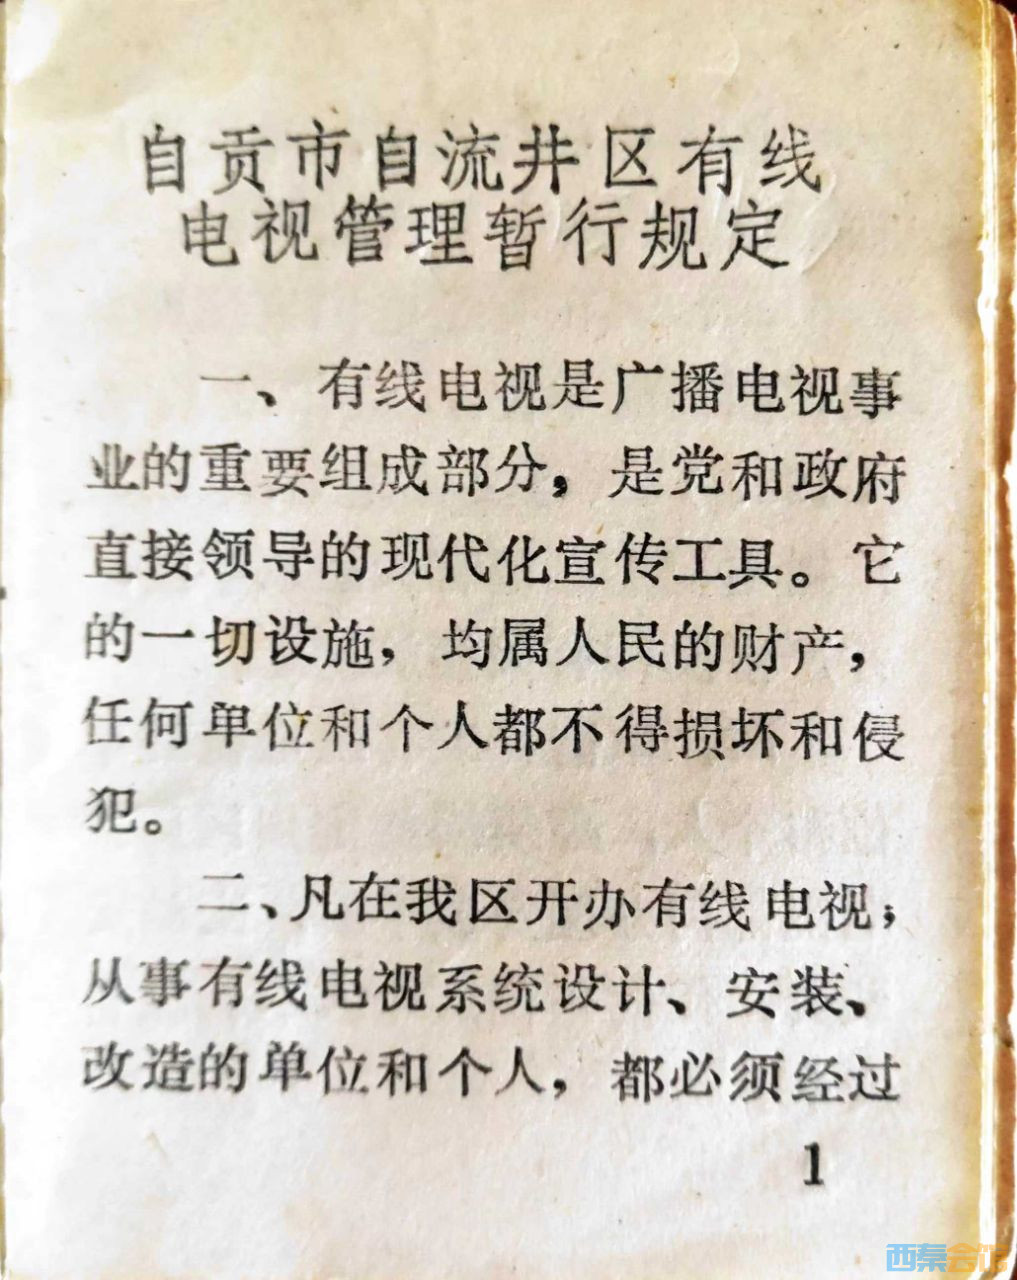 自贡市自流井区有线
电视管理暂行规定
一、有线电视是广播电视事
业的重要组成部分，是党和政府
直接领导的现代化宣传工具。它
的一切设施，均属人民的财产，
任何单位和个人都不得损坏和侵
犯。
二、凡在我区开办有线电视；
从事有线电视系统设计、安装、
改造的单位和个人，都必须经过
1
西秦会馆